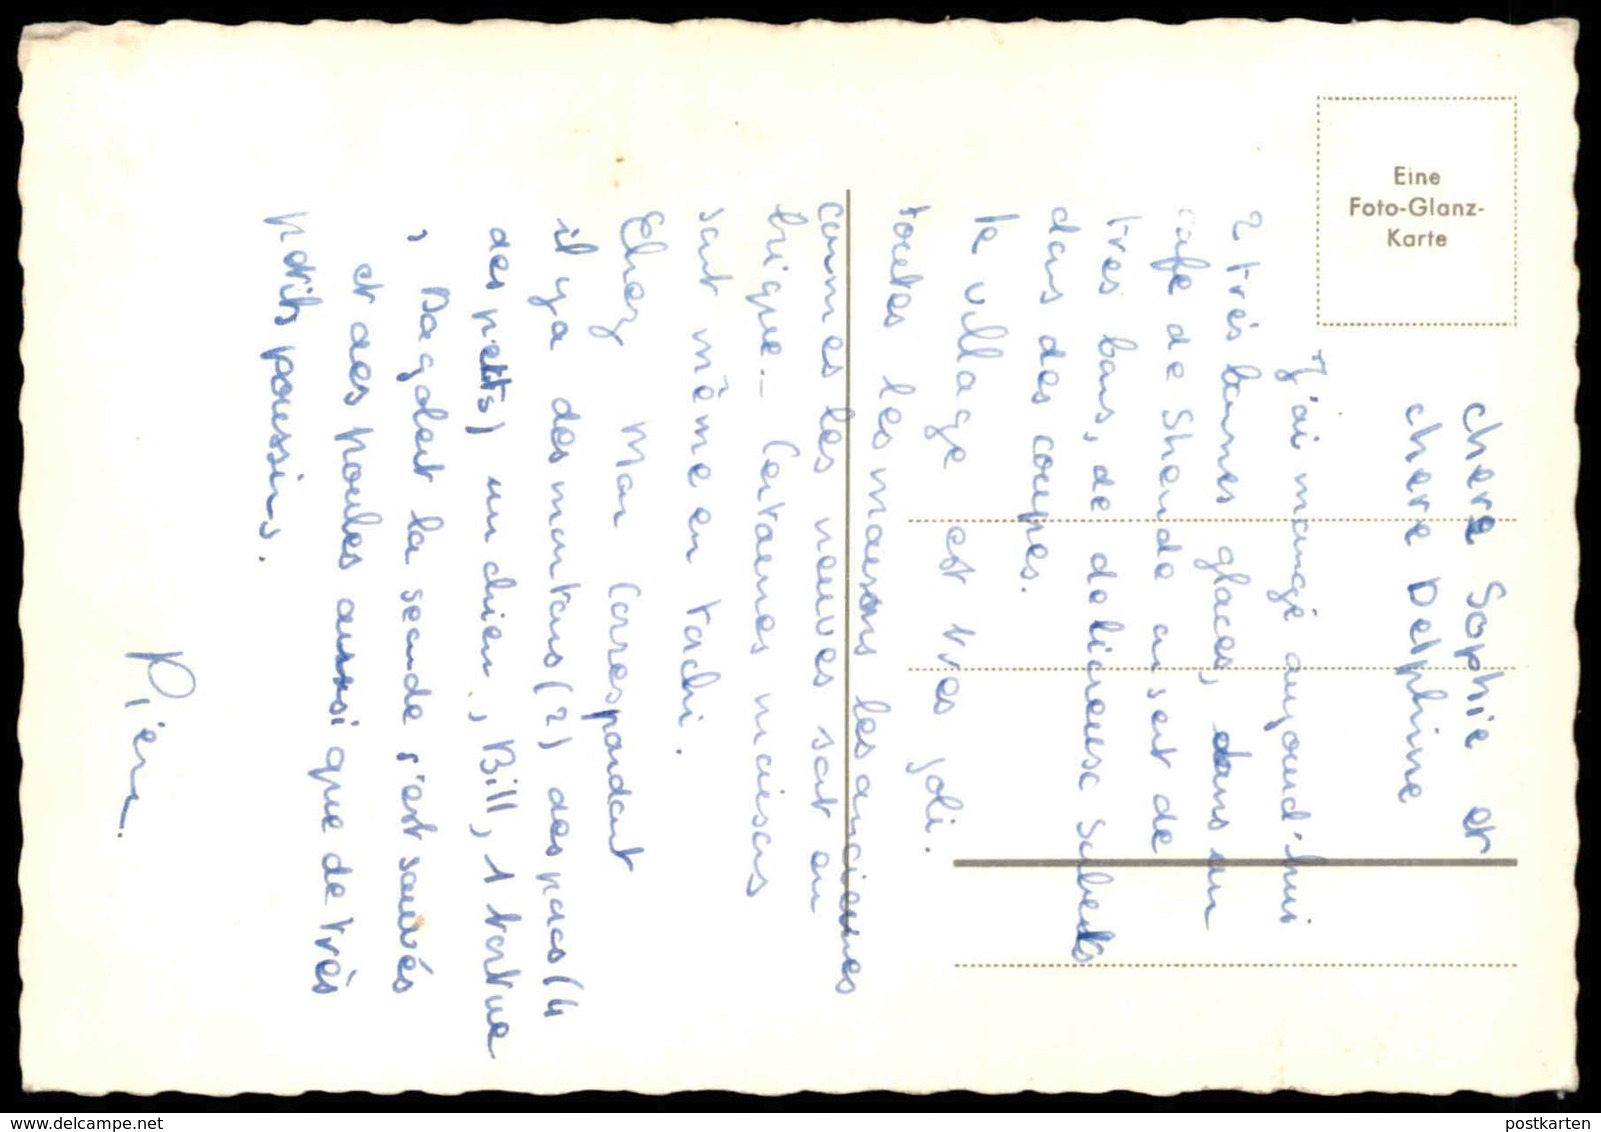 Eine
Foto-Glanz-
Karte
chere Sophie et
chere Delphine
J'ai mangé aujourd'hui
2 très bonnes glaces, dans un
café de Shende ausert de
très bons, de délicieuse
dans des coupes.
le village est très joli.
toutes les maisons les anciennes
comnes les neuves sont en
brique._ Certaines maisons
sont même en
Chez mon Correspondant
il ya des moutons (2) des pacs (4
des petits) un chien, Bill, 1 tortue
, Dagobert la seconde s'est sauvés
et des poules aussi que de très
petits poussins.
delcampe.net
postkarten